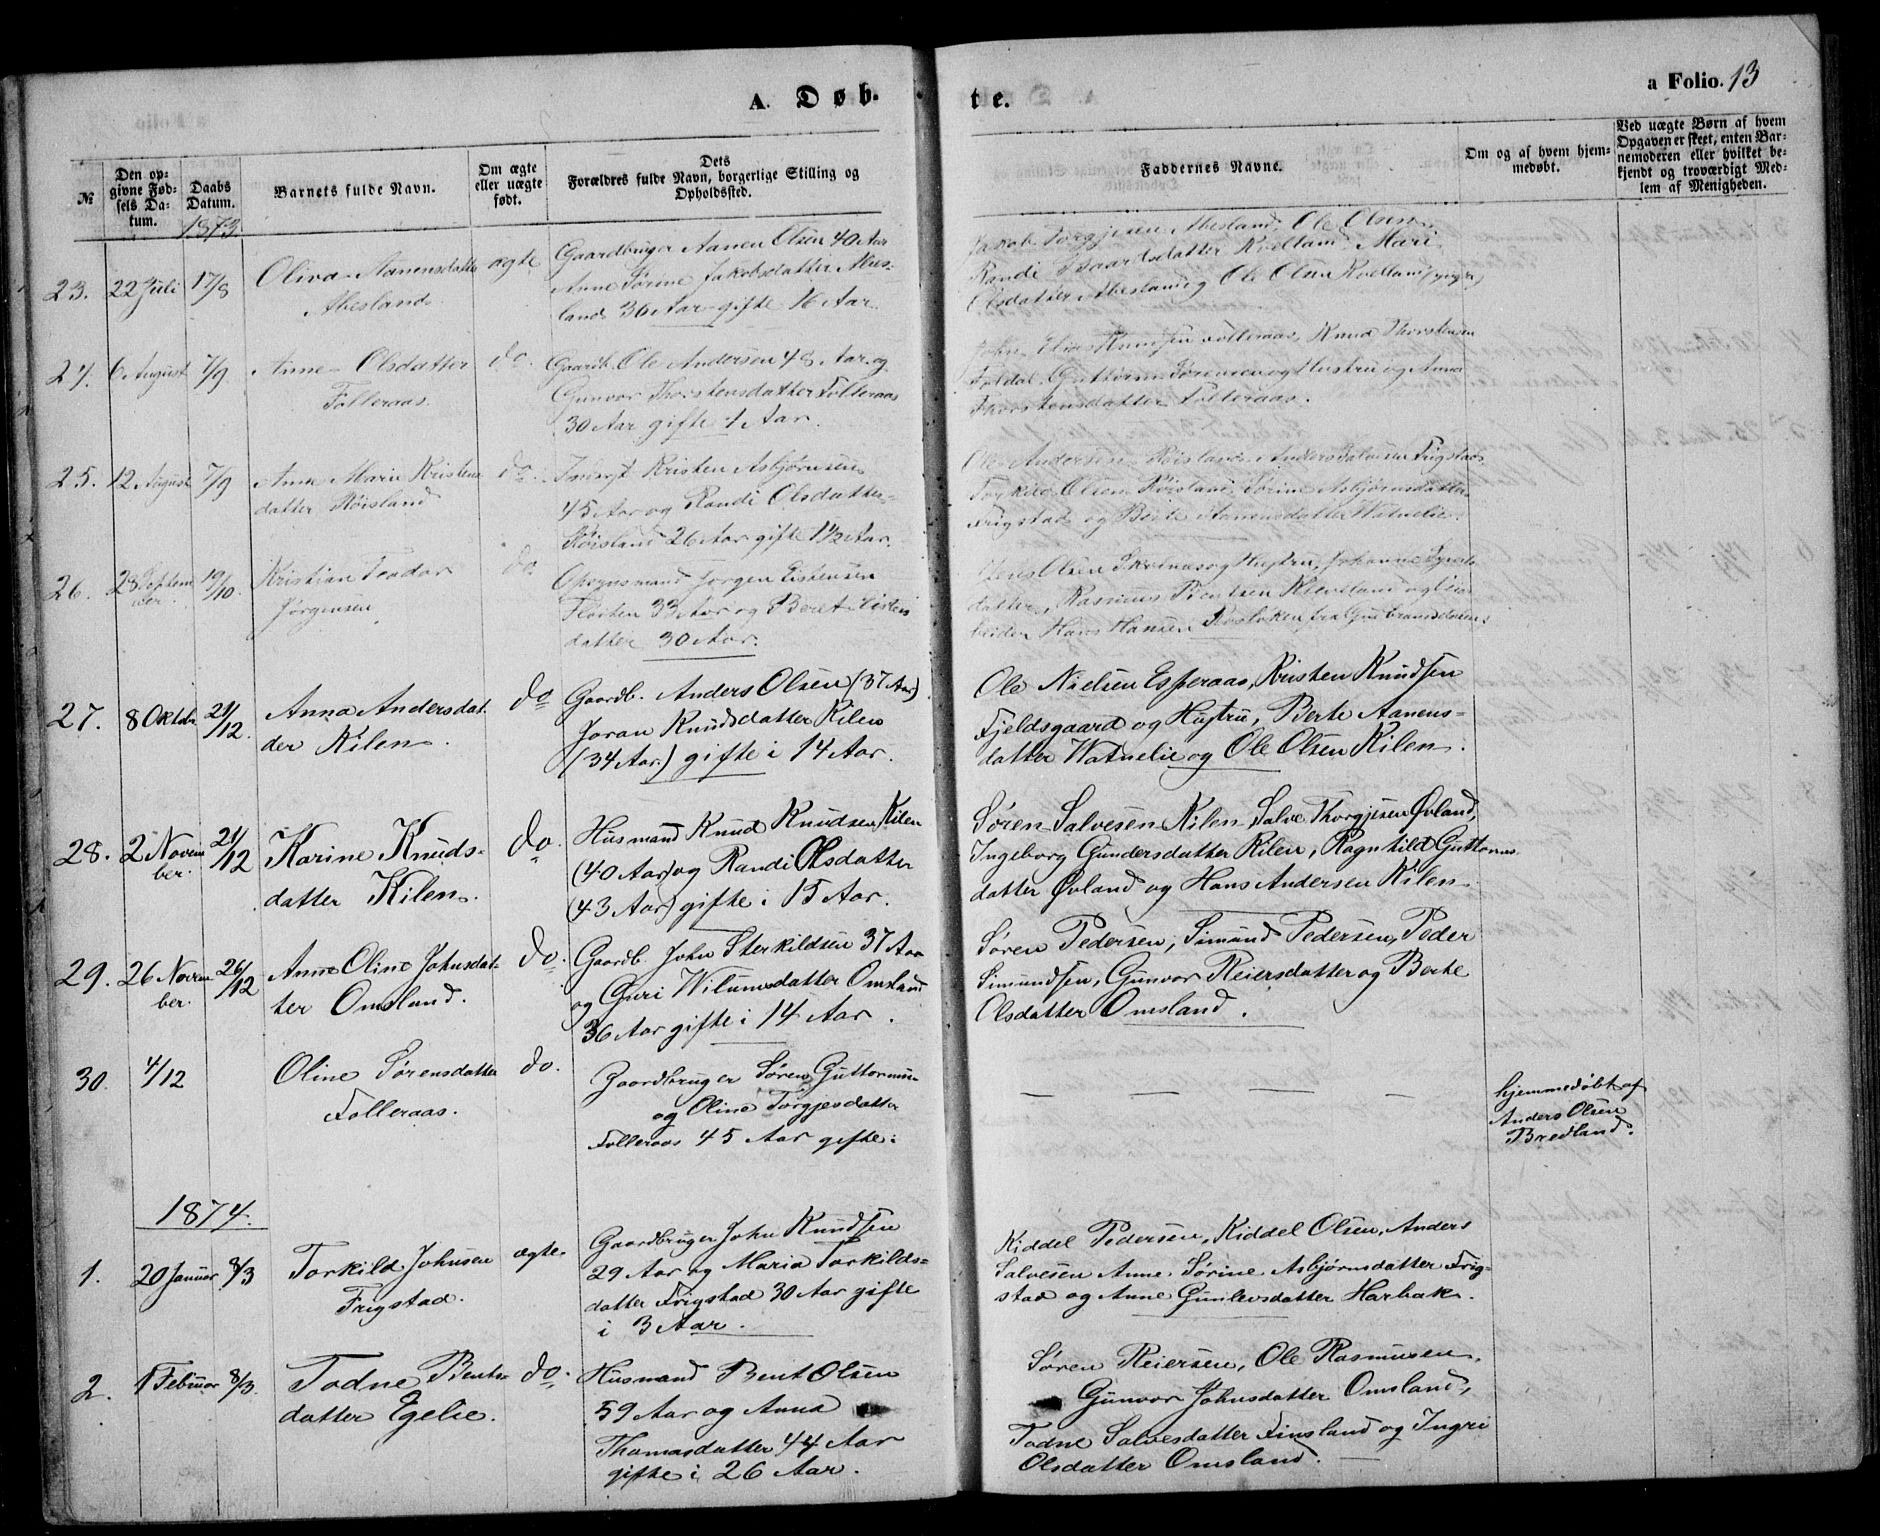 A. Døb-
te.
a Folio. 13
№
Den op-
givne Fød-
sels Da-
tum.
Daabs
Datum.
1873.
Barnets fulde Navn.
Om ægte
eller uægte
født.
Dets
Forældres fulde Navn, borgerlige Stilling og
Opholdssted.
Faddernes Navne.
Om og af hvem hjem-
medøbt.
Ved uægte Børn af hvem
Opgaven er skeet, enten Bar-
nemoderen eller hvilket be-
kjendt og troværdigt Med-
lem af Menigheden.
23. 22 Juli 17/8
Oliva Aanensdatter
Abesland
ægte
Gaardbruger Aanen Olsen 40 Aar
Anne Sørine Jakobsdatter Abes-
land 36 Aar gifte 16 Aar.
Jakob Torgjesen Abesland, Ole Olsen
Randi Kvellan Mari
Olsdatter Abesland og Ole Olsen Kvelland
24. 6 August 7/9
Anne Olsdatter
Folleraas.
do.
Gaardb. Ole Andersen 48 Aar og
Gunvor Thorstensdatter Folleraas
30 Aar gifte 1 Aar.
John Folleraas, Knud Thorstensen
Guttorm og Hustru og Anna
Thorstensdatter Folleraas.
25. 12 August 7/9
Anne Marie Kristens
datter Røisland
do.
Kristen Asbjørnsen
45 Aar og Randi Olsdatter
Røisland 26 Aar gifte 1 1/2 Aar.
Ole Andersen Røisland, Anders Salvesen Frigstad
Torkild Olsen Røisland, Sørine Asbjørnsdatter
Frigstad og Berte Aanensdatter Watnelie.
26. 28 Septem
ber. 19/10.
Kristian Teodor
Jørgensen
do.
Opsynsmand Jørgen Eistensen
Fløsten 33 Aar og Beret Eistens
datter 30 Aar.
Olsen og Hustru, Johanne
datter, Rasmus Bentsen Kleveland og
beider Hans Hansen fra Gudbrandsdalen.
27. 8 Oktbr 21/12.
Anna Andersdat-
der Kilen.
do
Gaardb. Anders Olsen (37 Aar)
Joran Knudsdatter Kilen
(34 Aar.) gifte i 14 Aar.
Ole Nielsen Esperaas, Kristen Knudsen
Fjeldsgaard og Hustru, Berte Aanens-
datter Watnelie og Ole Olsen Kilen.
28. 2 Novem
ber. 21/12
Karine Knuds-
datter Kilen.
do.
Husmand Knud Knudsen Kilen
(40 Aar) og Randi Olsdatter
(43 Aar) gifte i 15 Aar.
Søren Salvesen Kilen, Salve Thorgjesen Øvland,
Ingeborg Gundersdatter Kilen, Ragnhild Guttorms
datter Øvland og Hans Andersen Kilen.
29. 26 Novem
ber. 26/12
Anne Oline Johnsdat-
ter Omsland.
do.
Gaardb. John Sterkildsen 37 Aar
og Guri Wilumsdatter Omsland
36 Aar gifte i 14 Aar.
Søren Pedersen, Simund Pedersen, Peder
Simundsen, Gunvor Reiersdatter og Berte
Olsdatter Omsland.
30. 4/12
Oline Sørensdatter
Folleraas.
do.
Gaardbruger Søren Guttormsen
og Oline Torgjesdatter
Folleraas 45 Aar gifte:
hjemmedøbt af
Anders Olsen
Bredland.
1874.
1. 20 Januar 8/3
Torkild Johnsen
Frigstad.
ægte.
Gaardbruger John Knudsen
29 Aar og Maria Torkilds-
datter Frigstad 30 Aar gifte
i 3 Aar.
Kiddel Pedersen, Kiddel Olsen, Anders
Salvesen Anne Sørine Asbjørnsdatter Frig-
stad og Anne Gunlevsdatter Harbak.
2. 1 Februar 8/3.
Todne Bents-
datter Egelie.
do.
Husmand Bent Olsen
59 Aar og Anna
Thomasdatter 44 Aar
gifte i 26 Aar.
Søren Reiersen, Ole Rasmusen,
Gunvor Johnsdatter Omsland,
Todne Salvesdatter Finsland og Ingri
Olsdatter Omsland.